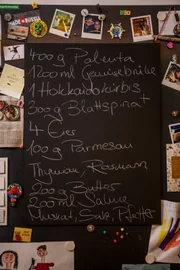 400g Polenta
1200ml Gemüsebrühe
1 Hokkaidokürbis
300g Blattspinat
4 Eier
100g Parmesan
Thymian, Rosmarin
200g Butter
200ml Sahne
Muskat, Salz, Pfeffer